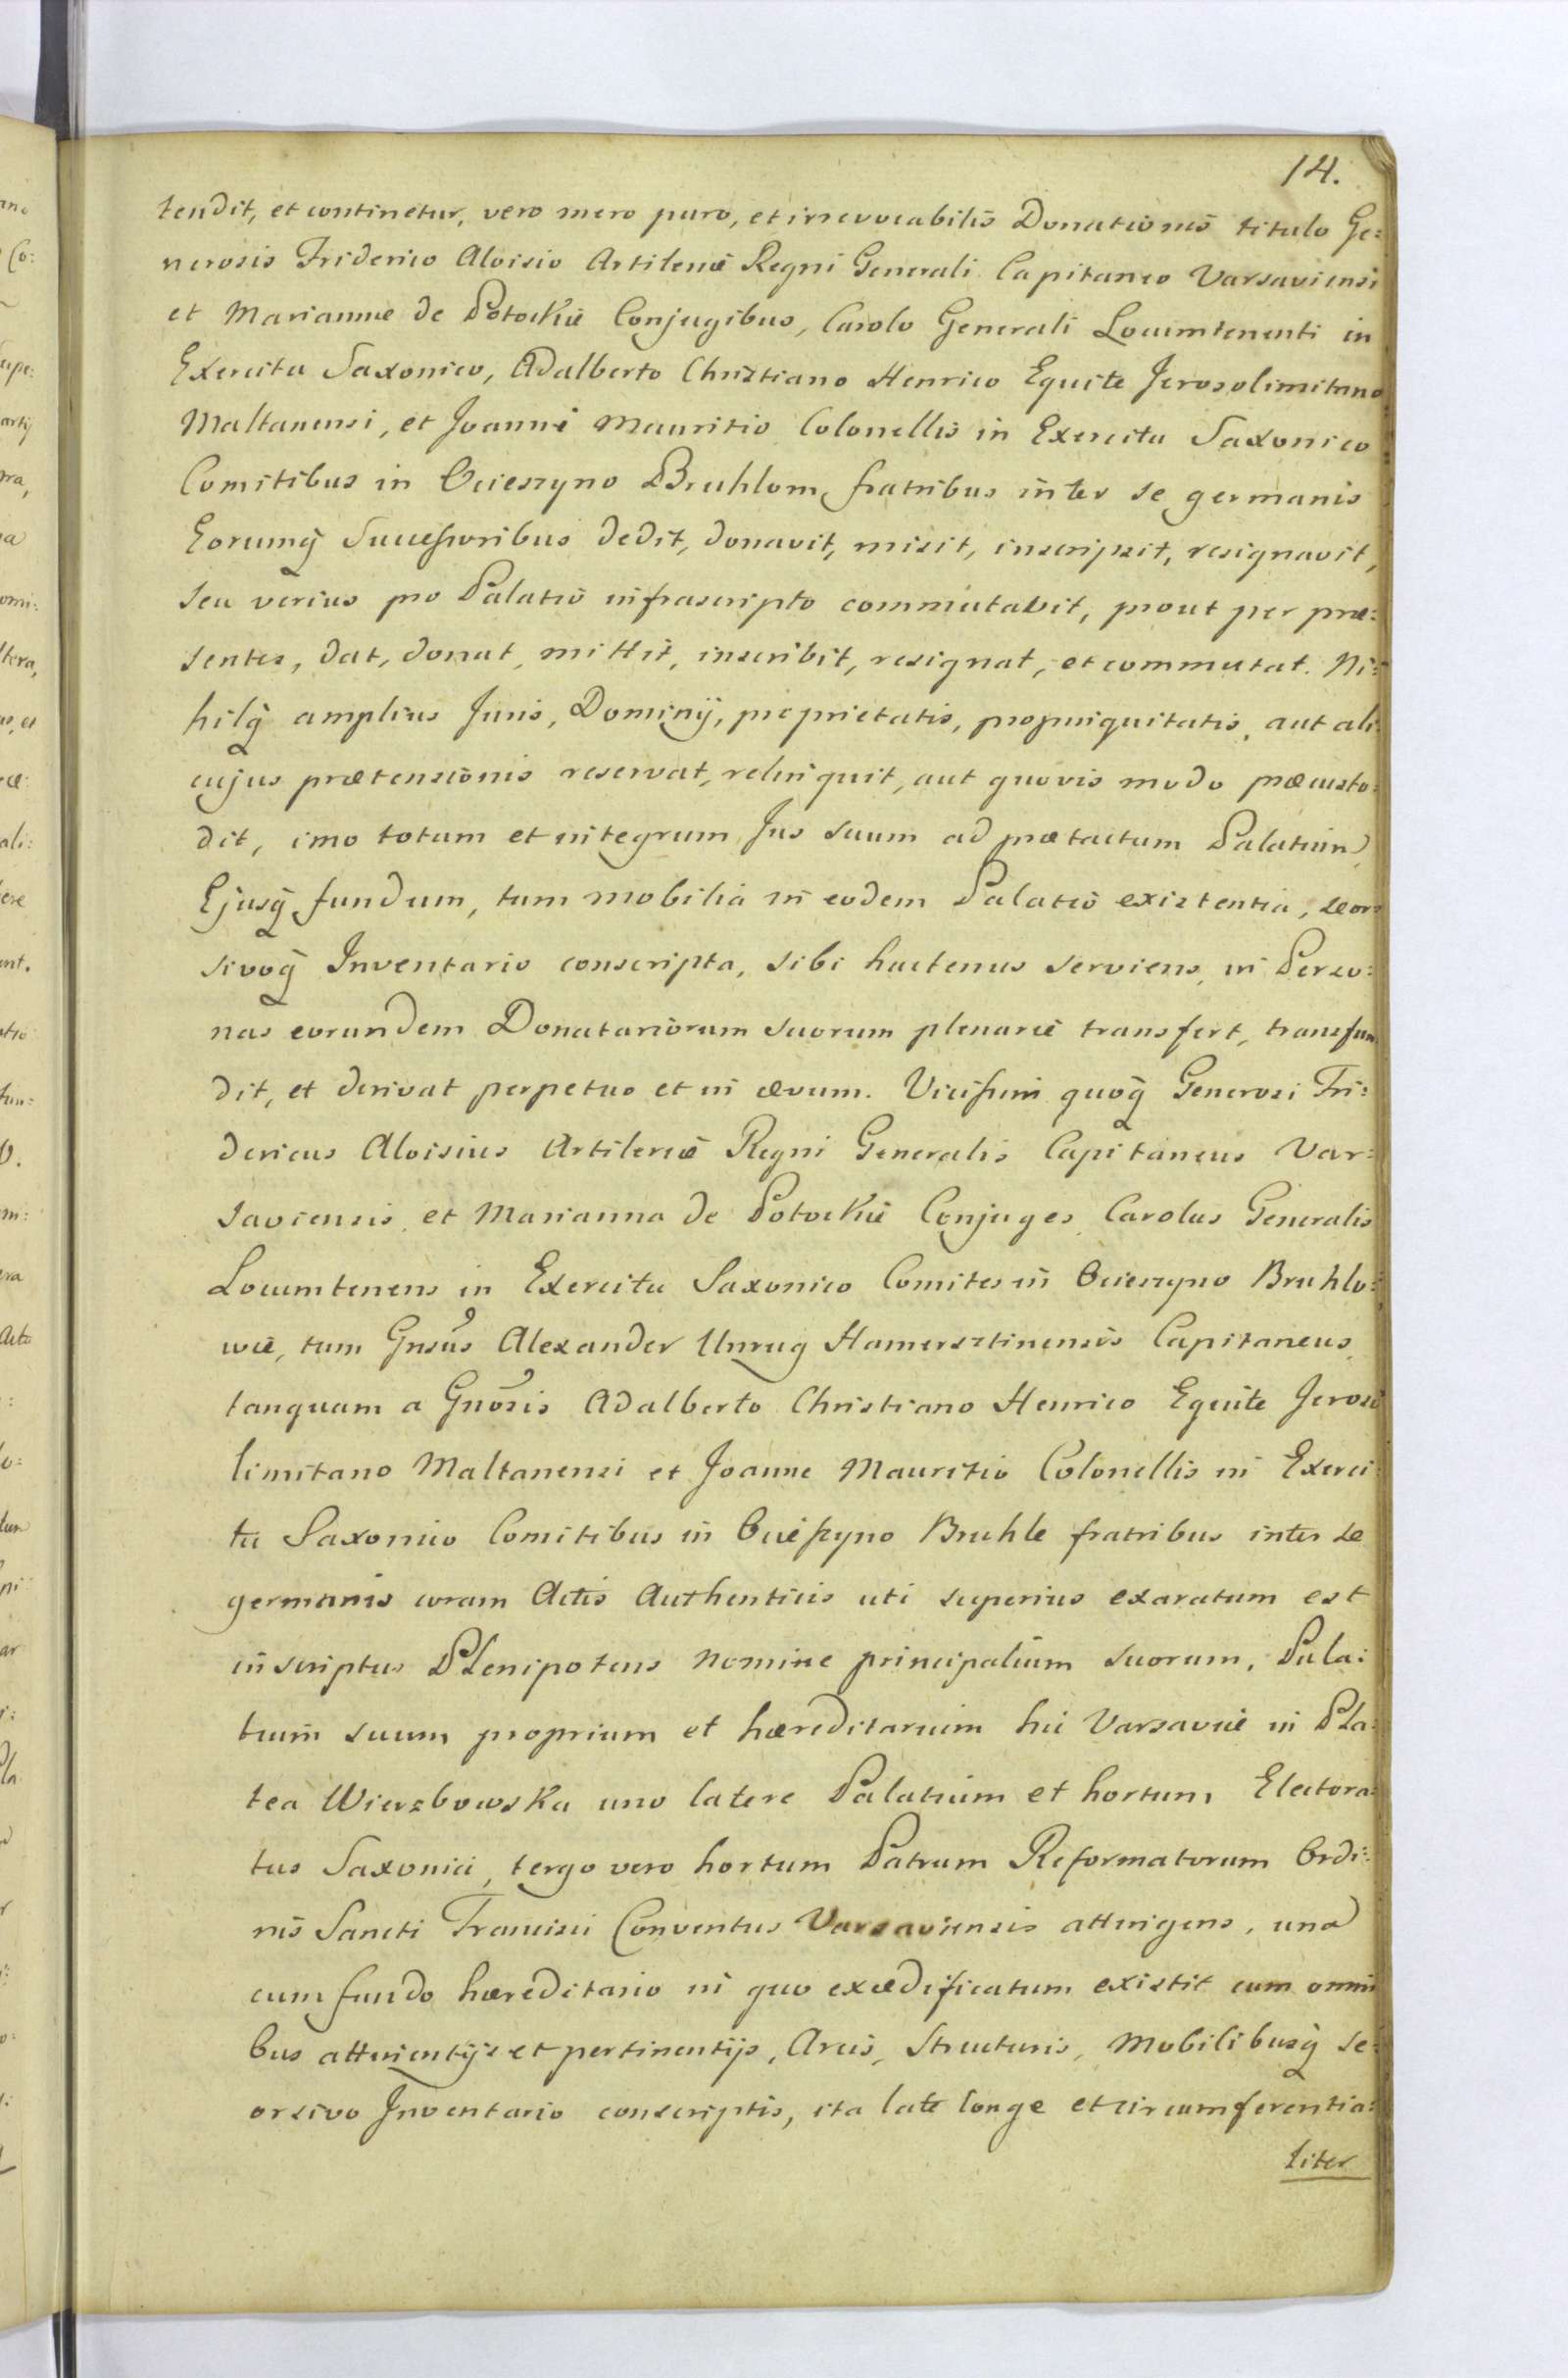 14.
tendit, et continetur, vero mero puro, et irrevocabilis Donationis titulo Ge:
nerosis Friderico Aloisio Artileriæ Regni Generali Capitaneo Varsaviensi
et Mariannæ de Potockie Conjugibus, Carolo Generali Locumtenenti in
Exercitu Saxonico, Adalberto Christiano Henrico Equite Jerosolimitano
Maltanensi, et Joanni Mauritio Colonellis in Exercitu Saxonico
Comitibus in Ocieszyno Bruhlom fratribus inter se germanis
Eorumq̃ Sucessoribus dedit, donavit, misit, inscripsit, resignavit,
seu verius pro Palatio infrascripto commutavit, prout per præ:
sentes, dat, donat, mittit, inscribit, resignat, et commutat. Ni:
hilq̃ amplius Juris, Dominij, proprietatis, propinquitatis, aut ali:
cujus prætensionis reservat, relinquit, aut quovis modo præcusto:
dit, imo totum et integrum Jus suum ad prætactum Palatium
Ejusq̃ fundum, tum mobilia in eodem Palatio existentia, seor:
sivoq̃ Inventario conscripta, sibi hactenus serviens, in Perso:
nas eorundem Donatariorum suorum plenarie transfert, transfun
dit, et derivat perpetuo et in ævum. Vicissim quoq̃ Generosi Fri:
dericus Aloisius Artileriæ Regni Generalis Capitaneus Var:
saviensis et Marianna de Potockie Conjuges Carolus Generalis
Locumtenens in Exercitu Saxonico Comites in Ocieszyno Bruhlo:
wie, tum Gnsus Alexander Unrug Hamersztinensis Capitaneus
tanquam a Gnosis Adalberto Christiano Henrico Equite Jeroso
limitano Maltanensi et Joanne Mauritio Colonellis in Exerci:
tu Saxonico Comitibus in Ocieszyno Bruhle fratribus inter se
germanis coram Actis Authenticis uti superius exaratum est
inscriptus Plenipotens nomine principalium suorum, Pala:
tium suum proprium et hæreditarium hic Varsaviæ in Pla:
tea Wierzbowska uno latere Palatium et hortum Electora:
tus Saxonici, tergo vero hortum Patrum Reformatorum Ordi:
nis Sancti Francisci Conventus Varsaviensis attingens, una
cum fundo hæreditario in quo exædificatum existit cum omni
bus attinentijs et pertinentijs, Areis, Structuris, Mobilibusq̃ se:
orsivo Inventario conscriptis, ita late longe et circumferentia:
liter